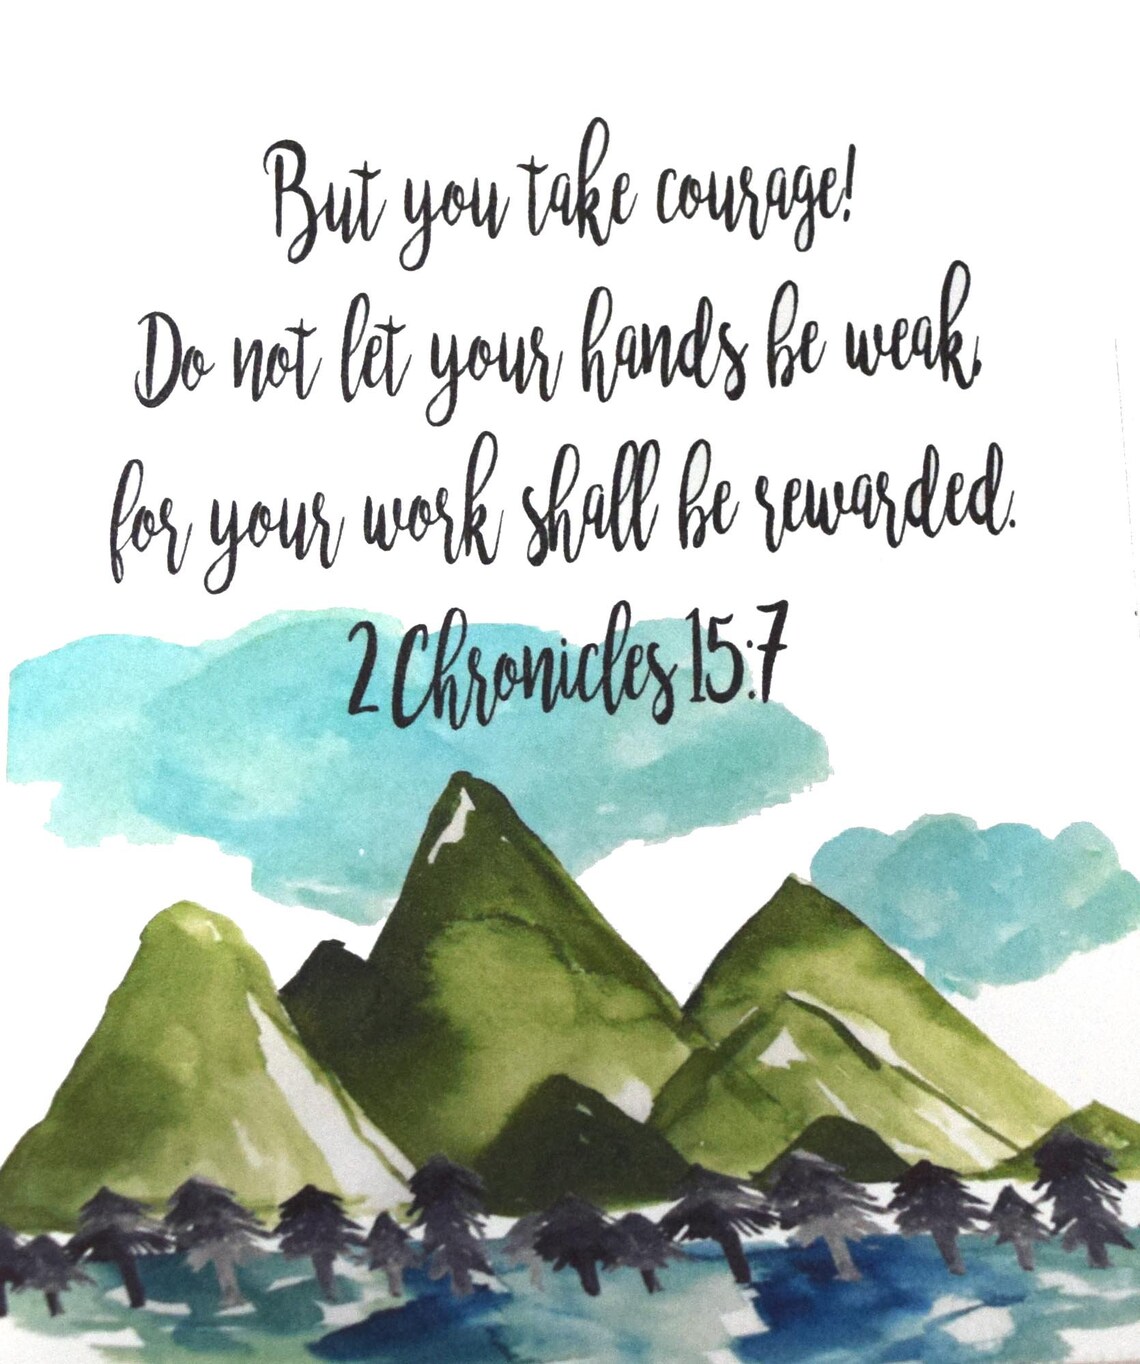 But you take courage!
Do not let your hands be weak,
for your work shall be rewarded.
2 Chronicles 15:7